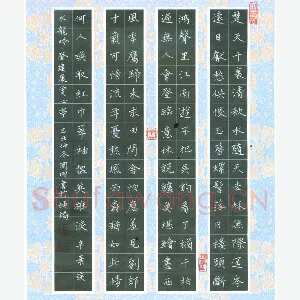 楚天千里清秋水隨天去秋無際遙岑
遠目獻愁供恨玉簪螺髻落日樓頭斷
鴻聲里江南遊子把吳鉤看了欄干拍
遍無人會登臨意休說鱸魚堪膾盡西
風季鷹歸未求田問舍怕應羞見劉郎
才氣可惜流年憂愁風雨樹猶如此倩
何人喚取紅巾翠袖搵英雄淚辛棄疾
水龍吟登建康賞心亭 己丑仲冬